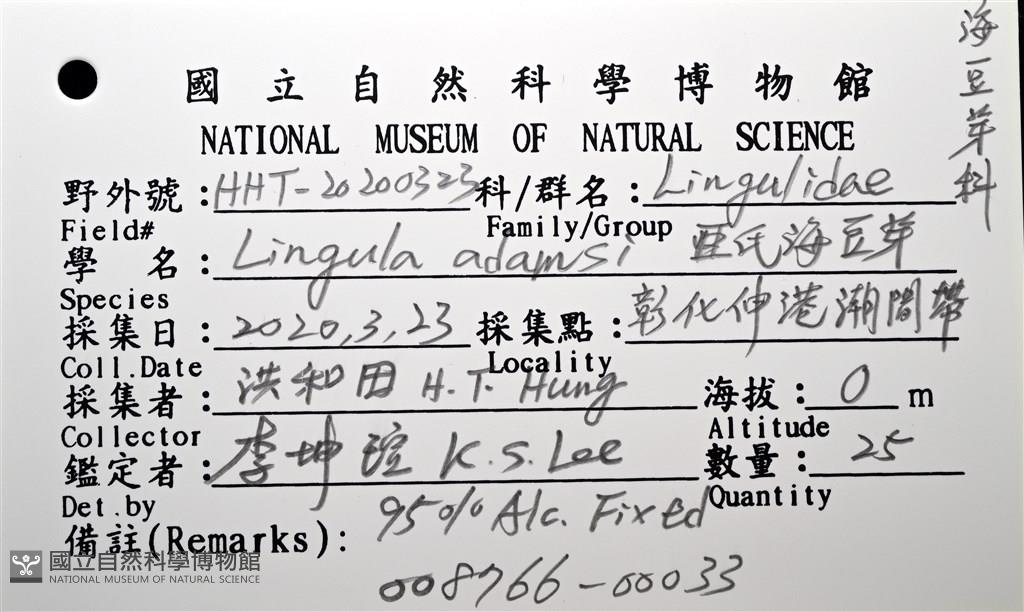 海豆芽科
國立自然科學博物館
NATIONAL MUSEUM OF NATURAL SCIENCE
野外號：HHT-20200323 科/群名：Lingulidae
Field# Family/Group
學 名：Lingula adamsi 亞氏海豆芽
Species
採集日：2020,3,23 採集點：彰化伸港潮間帶
Coll.Date Locality
採集者：洪和田 H.T. Hung 海拔：0 m
Collector Altitude
鑑定者：李坤瑄 K.S. Lee 數量：25
Det.by Quantity
備註(Remarks)： 95% Alc. Fixed
008766-00033
國立自然科學博物館
NATIONAL MUSEUM OF NATURAL SCIENCE